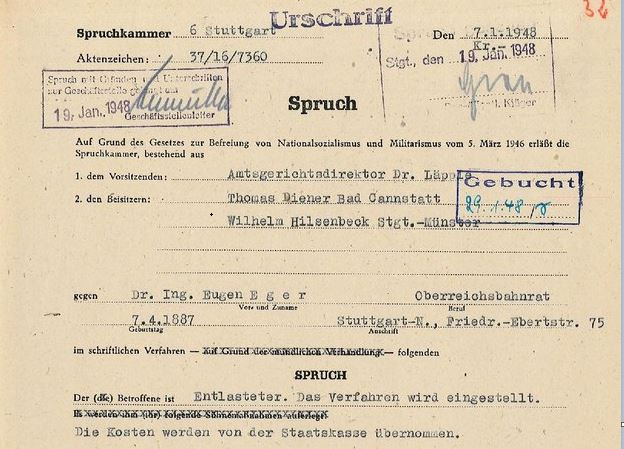 32
Urschrift
Spruchkammer 6 Stuttgart
Den 7.1.1948
Aktenzeichen: 37/16/7360
Kr.-
Stgt, den 19. Jan. 1948
Spruch mit Gründen und Unterschriften
zur Geschäftsstelle gelangt am
19. Jan. 1948
Geschäftsstellenleiter
Kläger
Spruch
Auf Grund des Gesetzes zur Befreiung von Nationalsozialismus und Militarismus vom 5. März 1946 erläßt die
Spruchkammer, bestehend aus
1. dem Vorsitzenden: Amtsgerichtsdirektor Dr. Läpple
2. den Beisitzern: Thomas Diener Bad Cannstatt
Gebucht
29.1.48
Wilhelm Hilsenbeck Stgt.-Münster
gegen Dr. Ing. Eugen E g e r Oberreichsbahnrat
Vor- und Zuname Beruf
7.4.1887 Stuttgart-N., Friedr.-Ebertstr. 75
Geburtstag Anschrift
im schriftlichen Verfahren — auf Grund der mündlichen Verhandlung — folgenden
SPRUCH
Der (die) Betroffene ist Entlasteter. Das Verfahren wird eingestellt.
Es werden ihm (ihr) folgende Sühnemaßnahmen auferlegt:
Die Kosten werden von der Staatskasse übernommen.